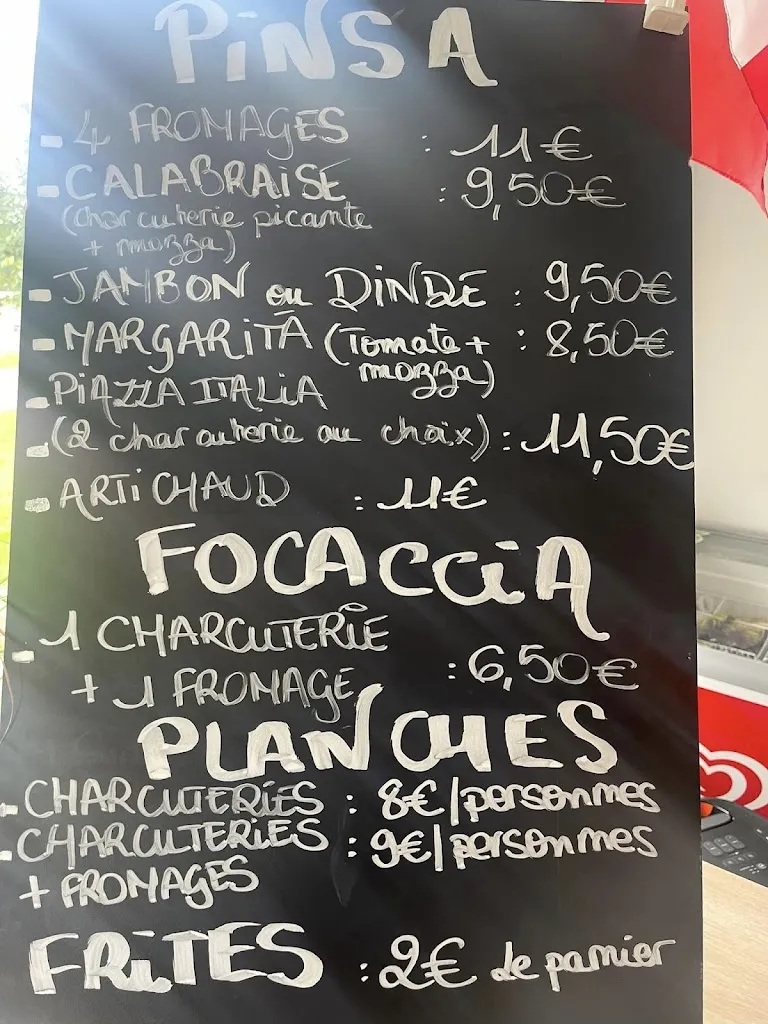 PINSA
- 4 FROMAGES : 11€
- CALABRAISE : 9,50€
(charcuterie picante
+ mozza)
- JAMBON ou DINDE : 9,50€
- MARGARITA (Tomate + : 8,50€
mozza)
- PIAZZA ITALIA
- (2 charcuterie au choix) : 11,50€
- ARTICHAUD : 11€
FOCACCIA
- 1 CHARCUTERIE
+ 1 FROMAGE : 6,50€
PLANCHES
- CHARCUTERIES : 8€/personnes
- CHARCUTERIES : 9€/personnes
+ FROMAGES
FRITES : 2€ le panier